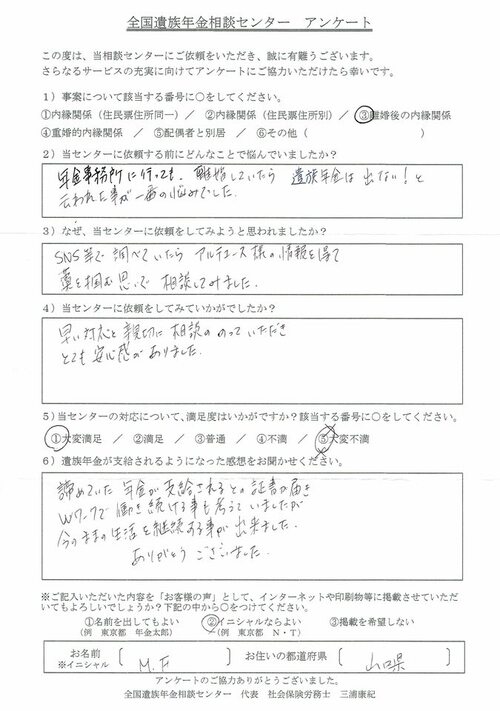 全国遺族年金相談センター　アンケート
この度は、当相談センターにご依頼をいただき、誠に有難うございます。
さらなるサービスの充実に向けてアンケートにご協力いただけたら幸いです。
1）事案について該当する番号に○をしてください。
①内縁関係（住民票住所同一）／②内縁関係（住民票住所別）／③離婚後の内縁関係
④重婚的内縁関係／⑤配偶者と別居／⑥その他（　　　　　）
2）当センターに依頼する前にどんなことで悩んでいましたか？
年金事務所に行っても、離婚していたら　遺族年金は出ない！と
云われた事が一番の悩みでした.
3）なぜ、当センターに依頼をしてみようと思われましたか？
SNS等で調べていたら　アルテユース様の情報を得て
藁を掴む思いで　相談してみました.
4）当センターに依頼をしてみていかがでしたか？
早い対応と親切に相談にのっていただき
とても安心感がありました.
5）当センターの対応について、満足度はいかがですか？該当する番号に○をしてください。
①大変満足　／　②満足　／　③普通　／　④不満　／　⑤大変不満
6）遺族年金が支給されるようになった感想をお聞かせください。
諦めていた　年金が支給されるとの証書が届き
Wワークで働き続ける事も考えていましたが
今のままの生活を継続する事が出来ました.
ありがとうございました.
※ご記入いただいた内容を「お客様の声」として、インターネットや印刷物等に掲載させていただ
いてもよろしいでしょうか？下記の中から○をつけてください。
①名前を出してもよい　②イニシャルならよい　③掲載を希望しない
（例　東京都　年金太郎）　（例　東京都　N・T）
お名前　※イニシャル　M.F　お住いの都道府県　山口県
アンケートのご協力ありがとうございました。
全国遺族年金相談センター　代表　社会保険労務士　三浦康紀